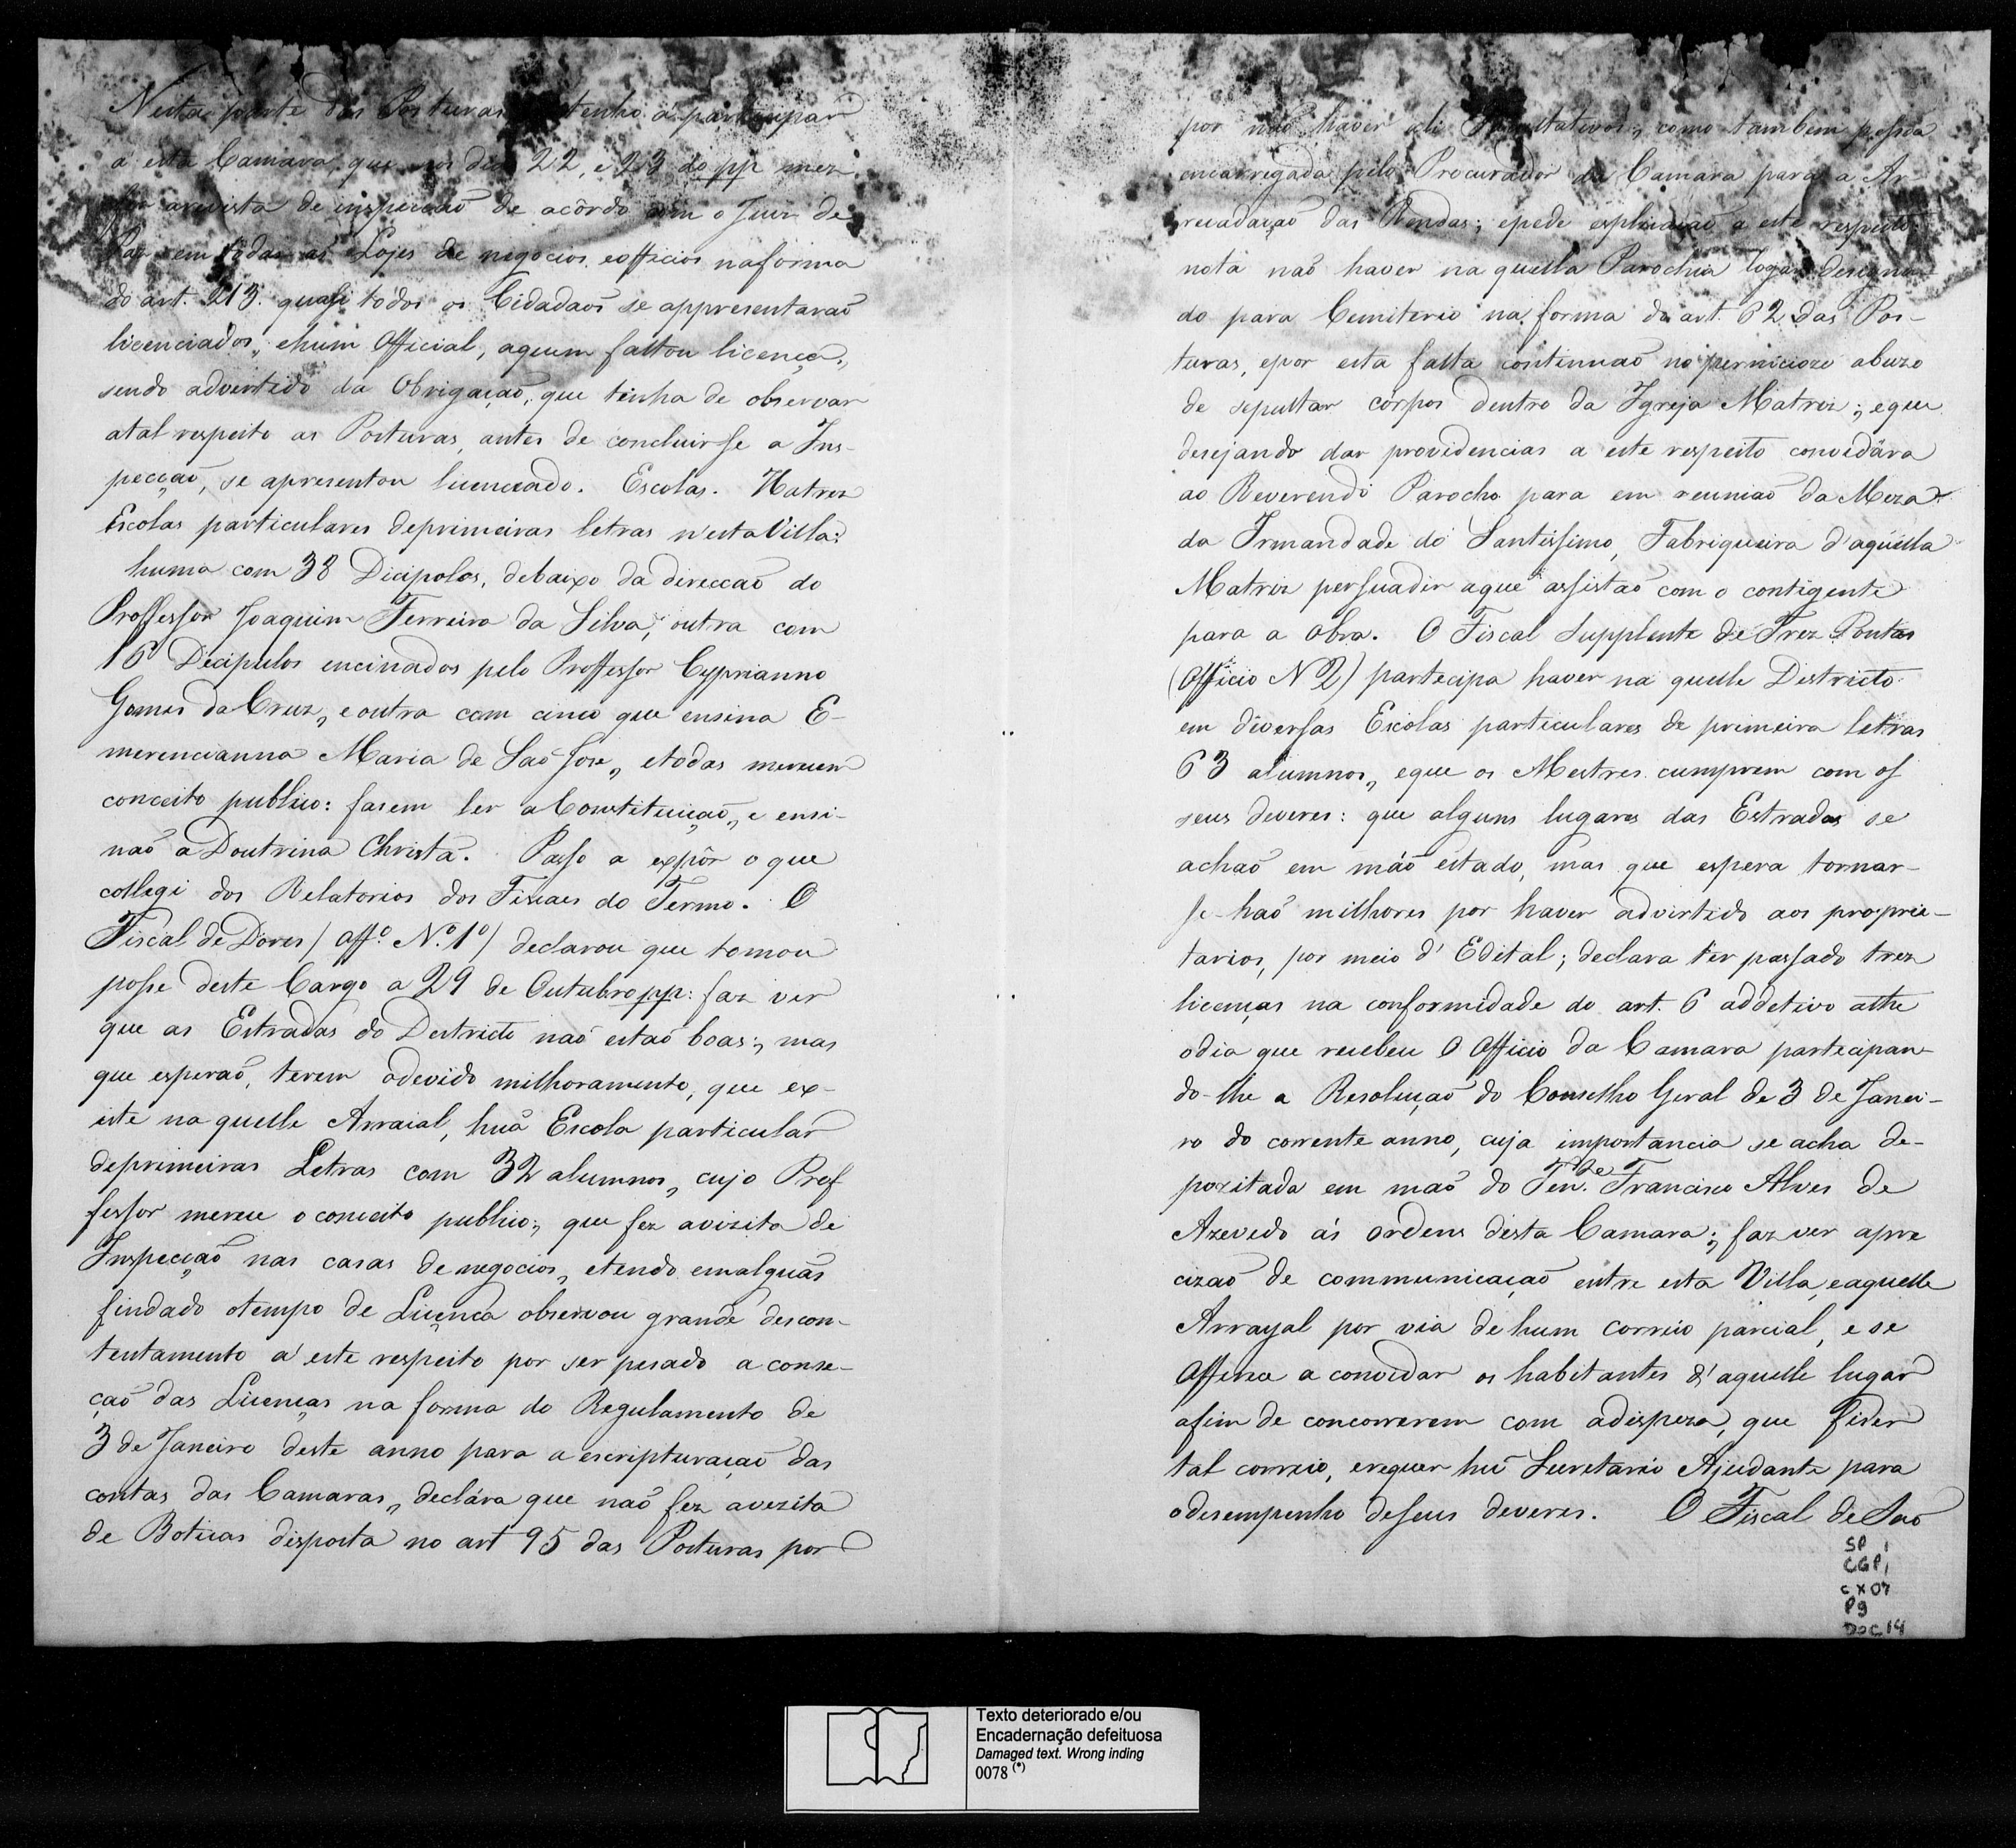 Nesta parte das Posturas tenho a participar
a esta Camara, que nos dias 22, e 23 do pp mez
arevista de inspecçaõ de acôrdo com o Juiz de
Paz em todas as Lojes de negocios, eofficios naforma
do art. 213. quasi todos os Cidadaõs se appresentaraõ
licenciados, ehum Official, aquem faltou licença,
sendo advertido da Obrigaçaõ, que tinha de observar
atal respeito as Posturas, antes de concluirse a Ins-
pecçaõ, se apresentou licenciado. Escolas. Hatrez
Escolas particulares deprimeiras letras n'esta Villa:
huma com 38 Dicipolos, debaixo da direccaõ do
Proffessor Joaquim Ferreira da Silva, outra com
16 Decipulos encinados pelo Proffessor Cyprianno
Gomes da Cruz, eoutra com cinco que ensina E-
merencianna Maria de Saõ Jose, etodas merecem
conceito publico: fasem ler aConstituiçaõ, e ensi-
naõ a Doutrina Christã. Passo a expôr o que
collegi dos Relatorios dos Fiscaes do Termo. O
Fiscal de Dores / Off.º N.º 1º / declarou que tomou
posse deste Cargo a 29 de Outubro pp: faz ver
que as Estradas do Destricto naõ estaõ boas; mas
que esperaõ, terem odevido milhoramento, que ex-
iste na quelle Arraial, huã Escola particular
deprimeiras Letras com 32 alumnos, cujo Prof
fessor merece o conceito publico; que fez avizita de
Inspecçaõ nas casas de negocios, etendo emalguãs
findado otempo de Licença observou grande descon-
tentamento a' este respeito por ser pesado a conse-
çaõ das Licenças na forma do Regulamento de
3 de Janeiro deste anno para a escripturaçaõ das
contas das Camaras, declára que naõ fez avezita
de Boticas disposta no art 95 das Posturas por
por naõ haver ali Facultativos; como tambem pessoa
encarregada pelo Procurador da Camara para a Ar-
recadaçaõ das Rendas; epede explicaçaõ a este respeito
nota naõ haver na quella Parochia logar designa-
do para Cemiterio na forma do art. 62 das Pos-
turas, epor esta falta continuaõ no perniciozo abuzo
de sepultar córpos dentro da Igreja Matriz; eque
desejando dar providencias a este respeito convidára
ao Reverendo Parocho para em reuniaõ da Meza
da Irmandade do Santissimo, Fabriqueira d'aquella
Matriz persuadir aque assistaõ com o contigente
para a obra. O Fiscal Supplente de Trez Pontas
(Officio N 2) partecipa haver na quelle Destricto
em diversas Escolas particulares de primeira letras
63 alumnos, eque os Mestres cumprem com os
seus deveres: que alguns lugares das Estradas se
achaõ em máo estado, mas que espera tornar-
se-haõ milhores por haver advirtido aos proprie-
tarios, por meio d' Edital; declara ter passado trez
licenças na conformidade do art. 6 addetivo athe
odia que recebeu O Officio da Camara partecipan-
do-lhe a Resoluçaõ do Conselho Geral de 3 de Janei-
ro do corrente anno, cuja importancia se acha de-
pozitada em maõ do Ten.te Francisco Alves de
Azevedo ás ordens desta Camara; faz ver apre
cizaõ de communicaçaõ entre esta Villa, eaquelle
Arrayal por via de hum correio parcial, e se
Offerece a convidar os habitantes d'aquelle lugar
afim de concorrerem com adispeza, que fizer
tal correio, erequer hũ Secretario Ajudante para
odesempenho deseus deveres. O Fiscal de Saõ
SP 1
CGP1
CX 07
P9
DOC 14
Texto deteriorado e/ou
Encadernação defeituosa
Damaged text. Wrong inding
0078 (*)